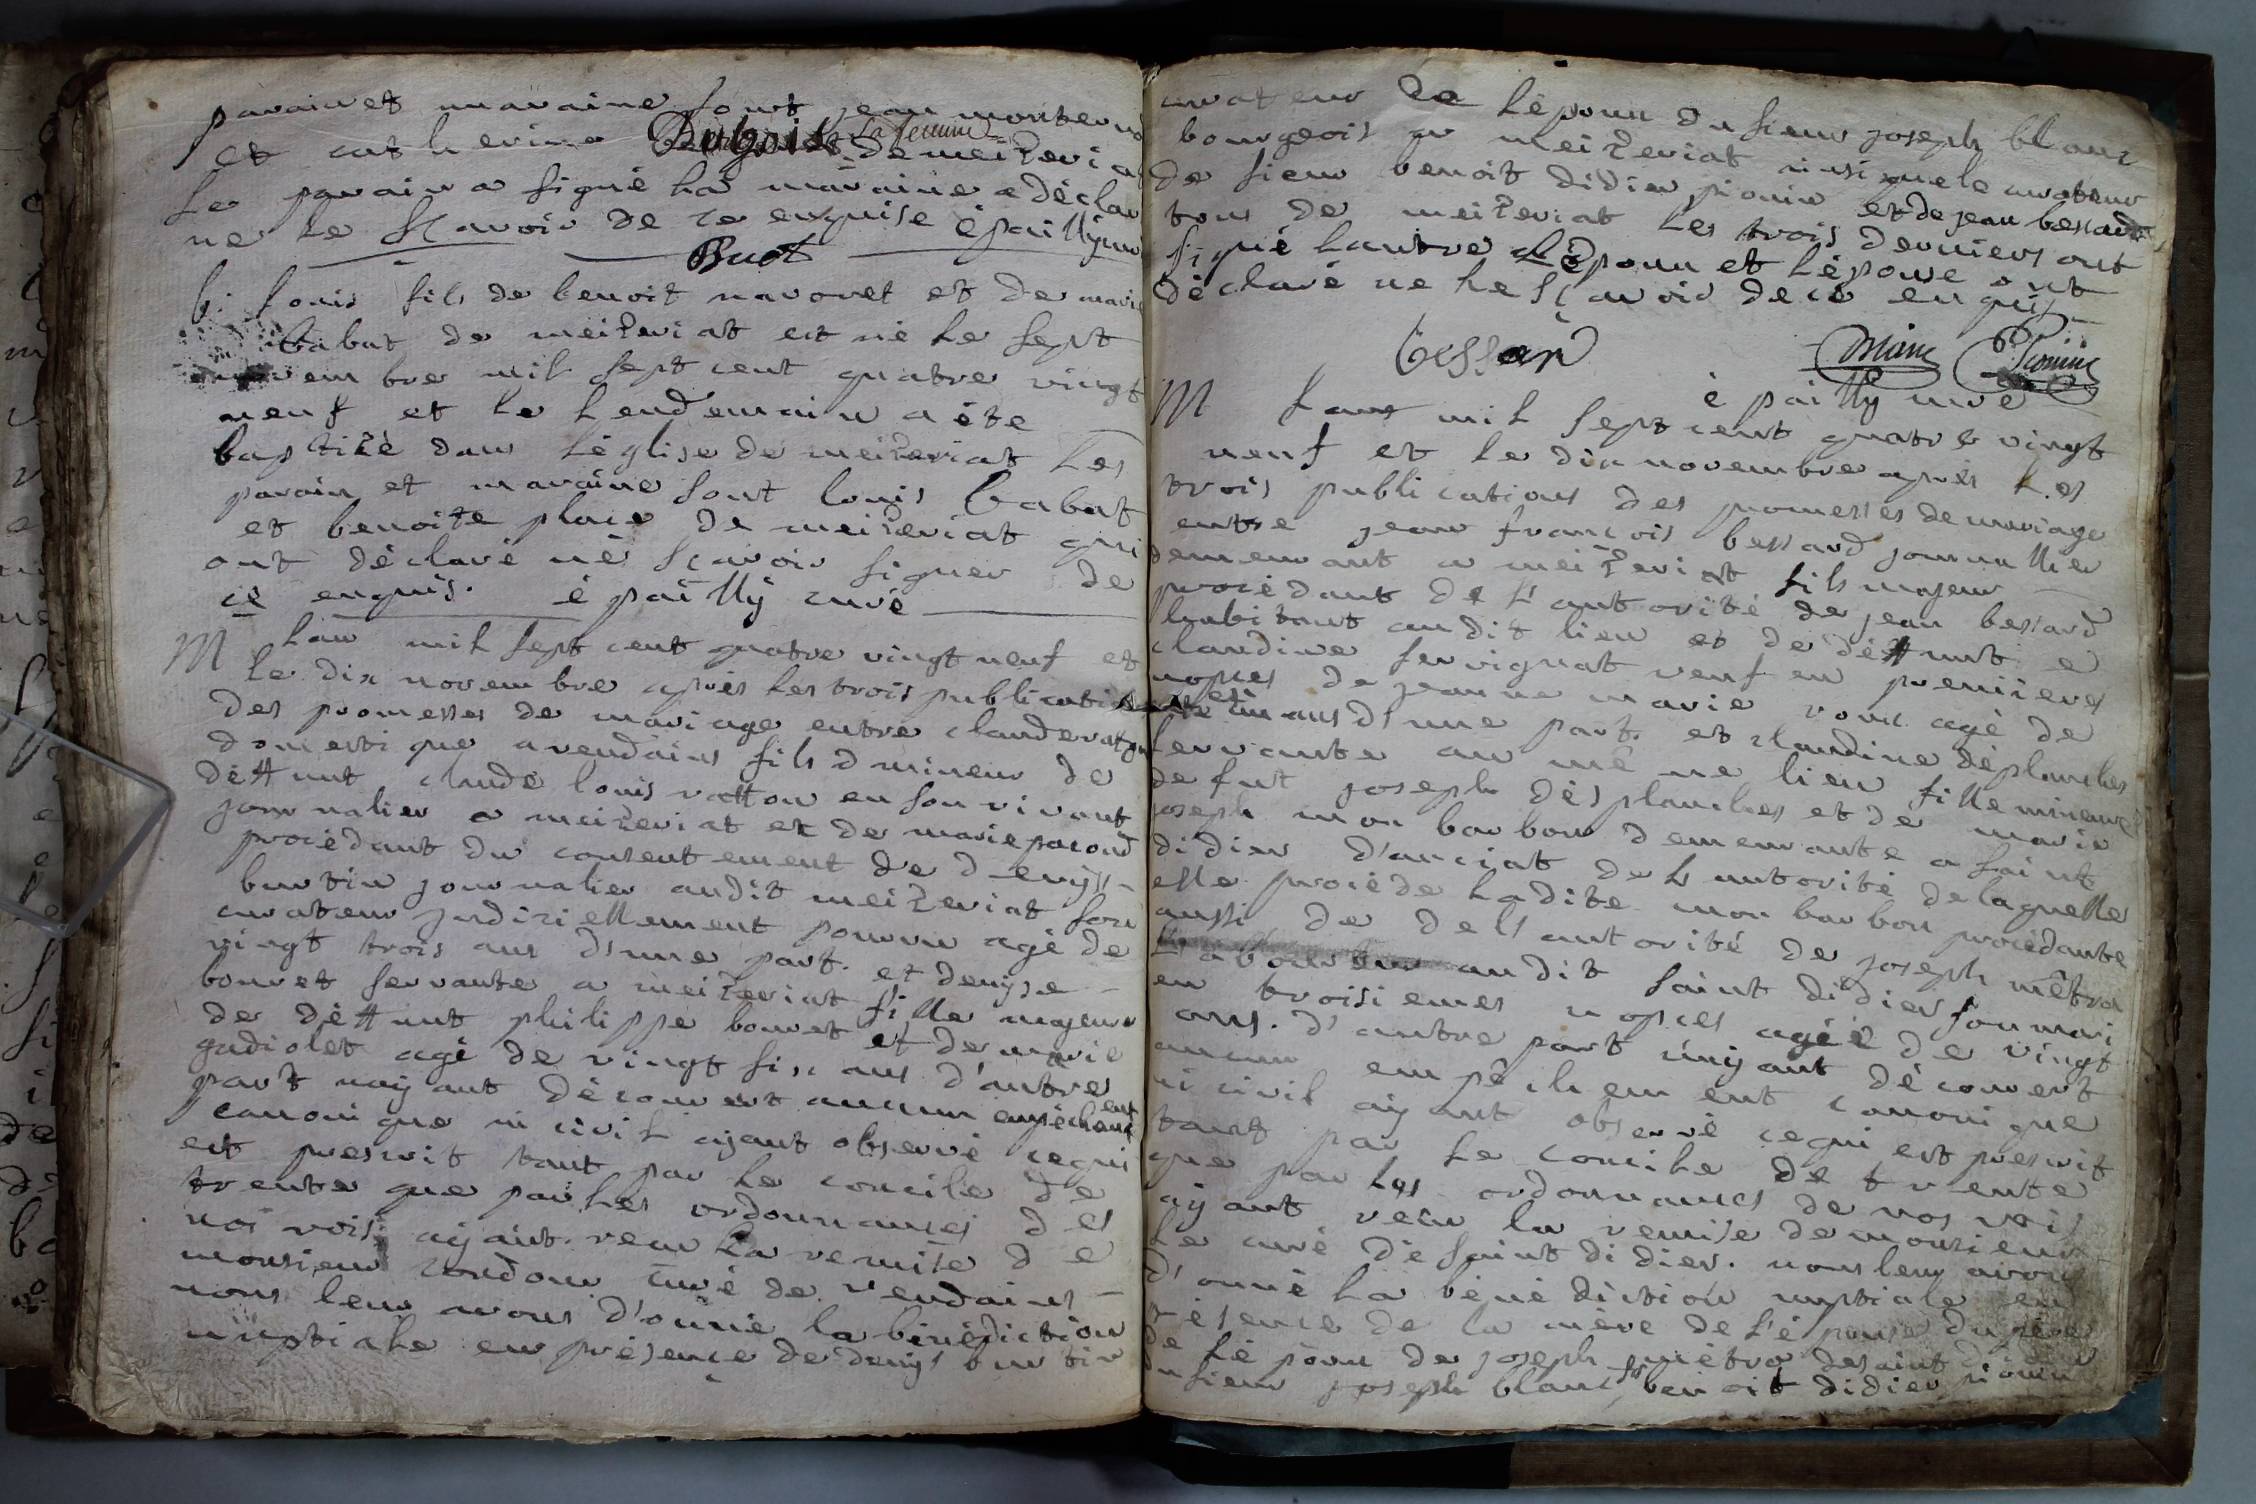 parain et maraine sont jean monterno
et catherine Bulgoist sa femme de meizeriat
Le parain a signé La maraine a déclaré
ne Le sçavoir de ce enquise épailly curé
Buot
b. Louis fils de benoit navoret et de marie
babat de meizeriat est né Le sept
novembre mil sept cent quatre vingt
neuf et Le Lendemain a été
baptizé dans L'église de meizeriat Les
parain et maraine sont Louis babat
et benoite place de meizeriat qui
ont déclaré ne sçavoir signer de
ce enquis. épailly curé
M L'an mil sept cent quatre vingt neuf et
Le dix novembre après Les trois publications
des promesses de mariage entre claude raton
domestique a vendains fils mineur de
deffunt claude louis ratton en son vivant
journalier a meizeriat et de marie pacoud
procédant du consentement de denys
burtin journalier audit meizeriat son
curateur judiziellement pourvu agé de
vingt trois ans d'une part. et denyse
bouvet servante a meizeriat fille majeure
de deffunt philippe bouvet et de marie
gadiolet agé de vingt six ans d'autre
part nayant découvert aucun empêchement
canonique ni civil ayant observé ce qui
est prescrit tant par Le concile de
trente que par Les ordonnances des
nos rois ayant reçu La remise de
monsieur condour curé de vendains
nous leur avons d'onné la bénédiction
nuptiale en présence de denys burtin
curateur de L'époux du sieur joseph blanc
bourgeois a meizeriat ainsi que le curateur
de sieur benoit didier pionin et de jean bessard
tous de meizeriat Les trois derniers ont
signé Lautre L'époux et L'épouse ont
déclaré ne Le sçavoir de ce enquis
bessard blanc Pionin
épailly curé
M L'an mil sept cent quatre vingt
neuf et le dix novembre après Les
trois publications des promesses de mariage
entre jean françois bessard journallier
demeurant a meizeriat fils majeur
procédant de L'autorité de jean bessard
habitant audit lieu et de deffunte
claudine servignat veuf en premieres
nopces de jeanne marie roux agé de
ans d'une part et claudine déplanches
servante au même lieu fille mineure
de fut joseph désplanches et de marie
joseph mon barbon demeurante a saint
didier d'aussiat de L'autorité de laquelle
elle procéde Ladite mon barbon procédante
aussi de de L'autorité de joseph métra
Laboureur audit saint didier son mari
en troisiemes nopces agée de vingt
ans. d'autre part n'ayant découvert
aucun empêchement canonique
ni civil ayant observé ce qui est prescrit
tant par Le concile de trente
que par Les ordonnances de nos rois
ayant reçu la remise de monsieur
Le curé de saint didier. nous leur avons
d'onné La bénédiction nuptiale en
présence de la mère de L'épouse du père
de L'époux de joseph métra de saint didier
du sieur joseph blanc, benoit didier pionin